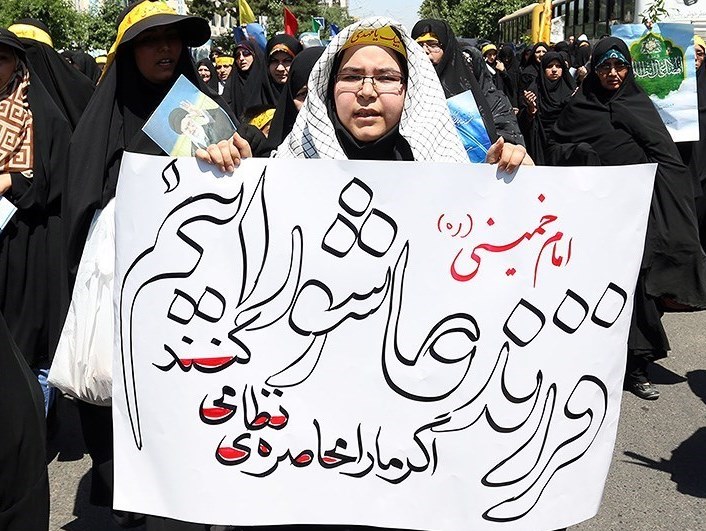 امام خمینی (ره)
فرزند عاشورائیم
اگر ما را محاصره ی
نظامی
کنند